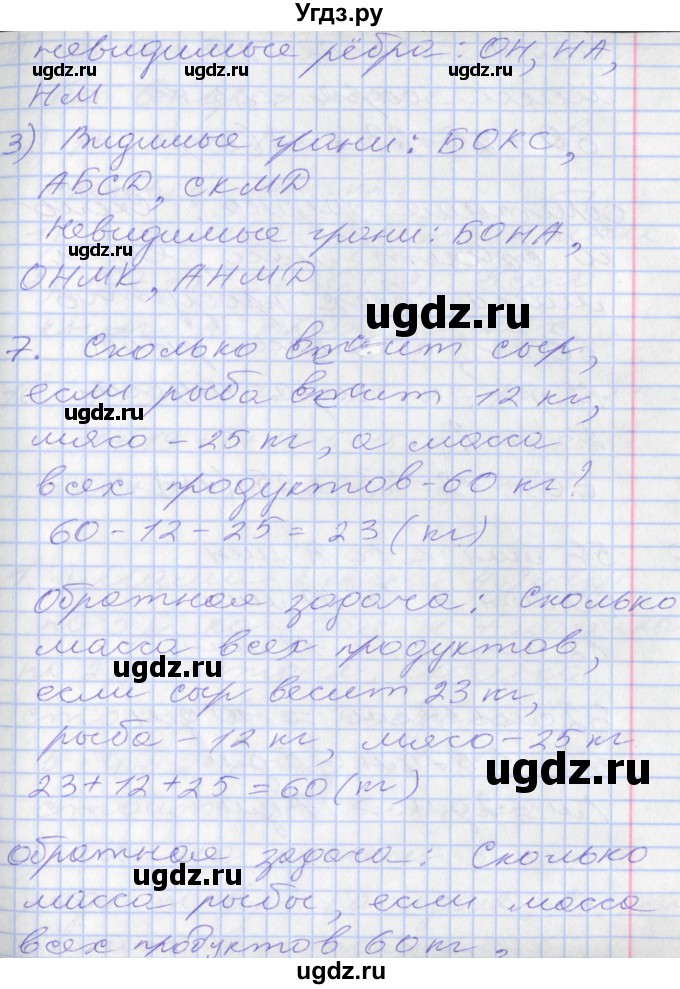 Угдз.ру
невидимые рёбра: ОН, НА,
НМ
3) Видимые грани: БОКС,
АБСD, СКМD
Невидимые грани: БОНА,
ОНМК, АНМD
7. Сколько весит сыр,
если рыба весит 12 кг,
мясо - 25 кг, а масса
всех продуктов - 60 кг?
60 - 12 - 25 = 23 (кг)
Обратная задача: Сколько
масса всех продуктов,
если сыр весит 23 кг,
рыба - 12 кг, мясо - 25 кг
23 + 12 + 25 = 60 (кг)
Обратная задача: Сколько
масса рыбы, если масса
всех продуктов 60 кг,
ugdz.ru
ugdz.ru
ugdz.ru
ugdz.ru
ugdz.ru
ugdz.ru
ugdz.ru
ugdz.ru
ugdz.ru
ugdz.ru
ugdz.ru
ugdz.ru
ugdz.ru
ugdz.ru